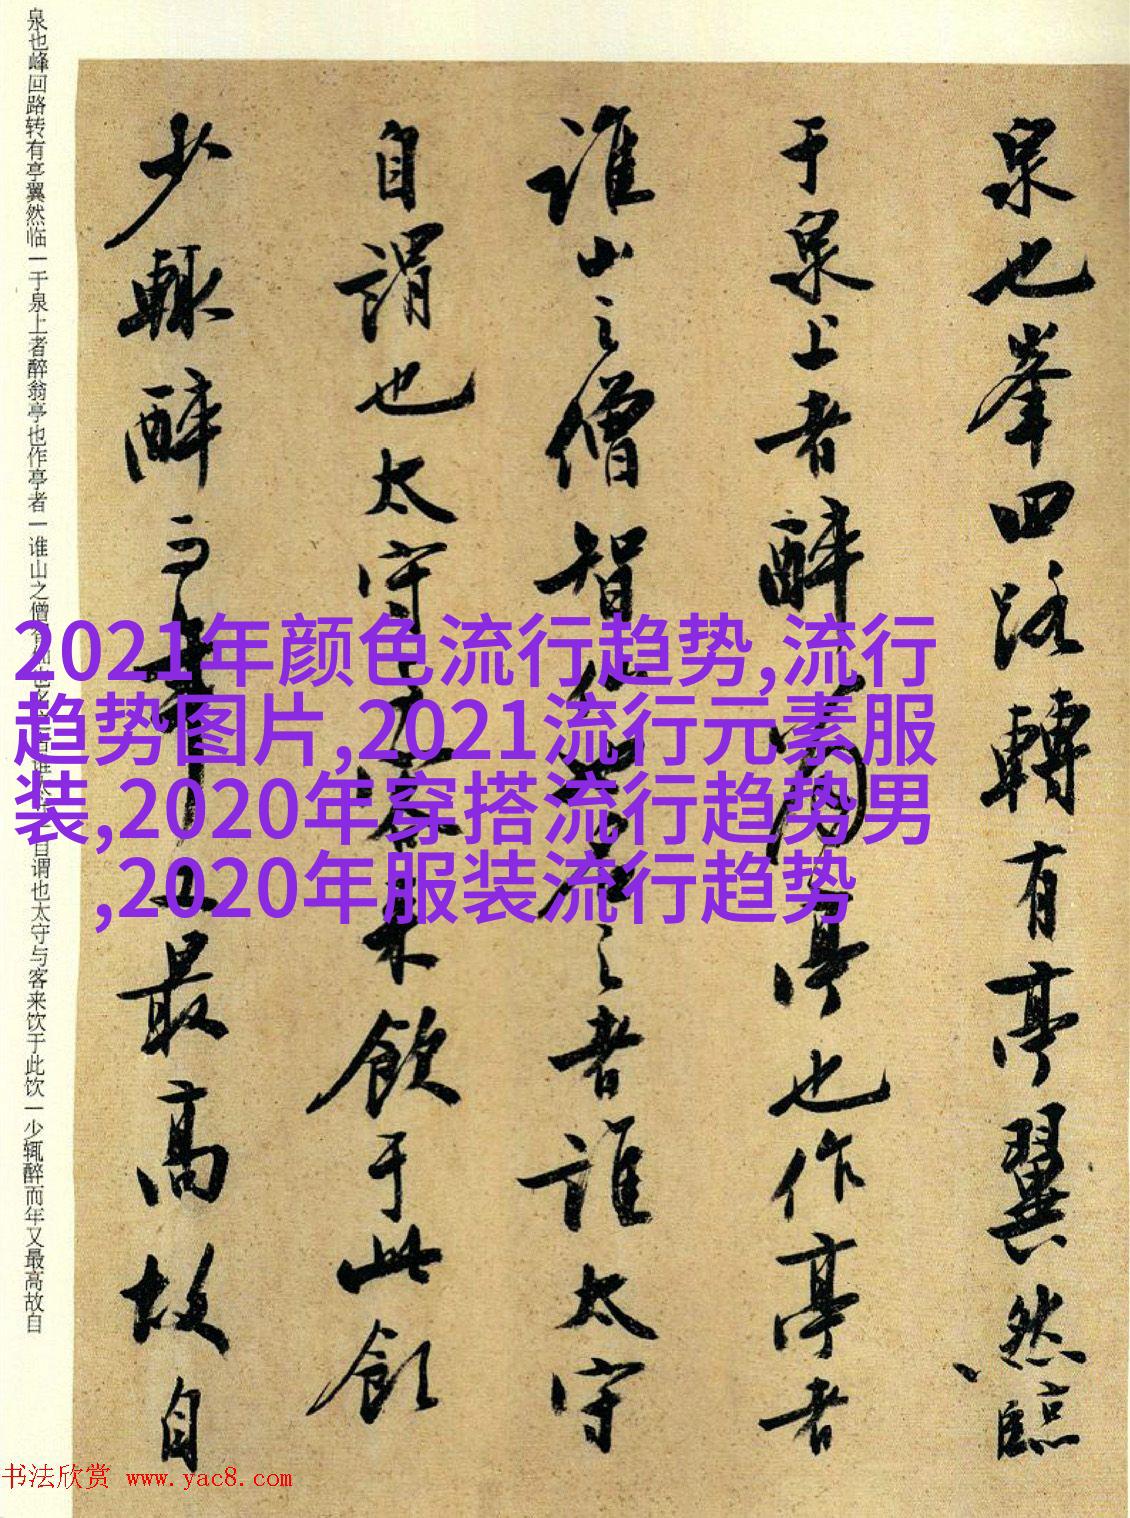 泉也峯回路轉有亭翼然臨
于泉上者醉翁亭也作亭者
誰山之僧智仙也名之者誰太守
自謂也太守与客来飲于此飲
少輒醉而年又最高故自
泉也峰回路转有亭翼然临一于泉上者醉翁亭也作亭者一谁山之僧 自谓也太守与客来饮于此饮一少辄醉而年又最高故自
2021年颜色流行趋势,流行
趋势图片,2021流行元素服
装,2020年穿搭流行趋势男
,2020年服装流行趋势
书法欣赏 www.yac8.com